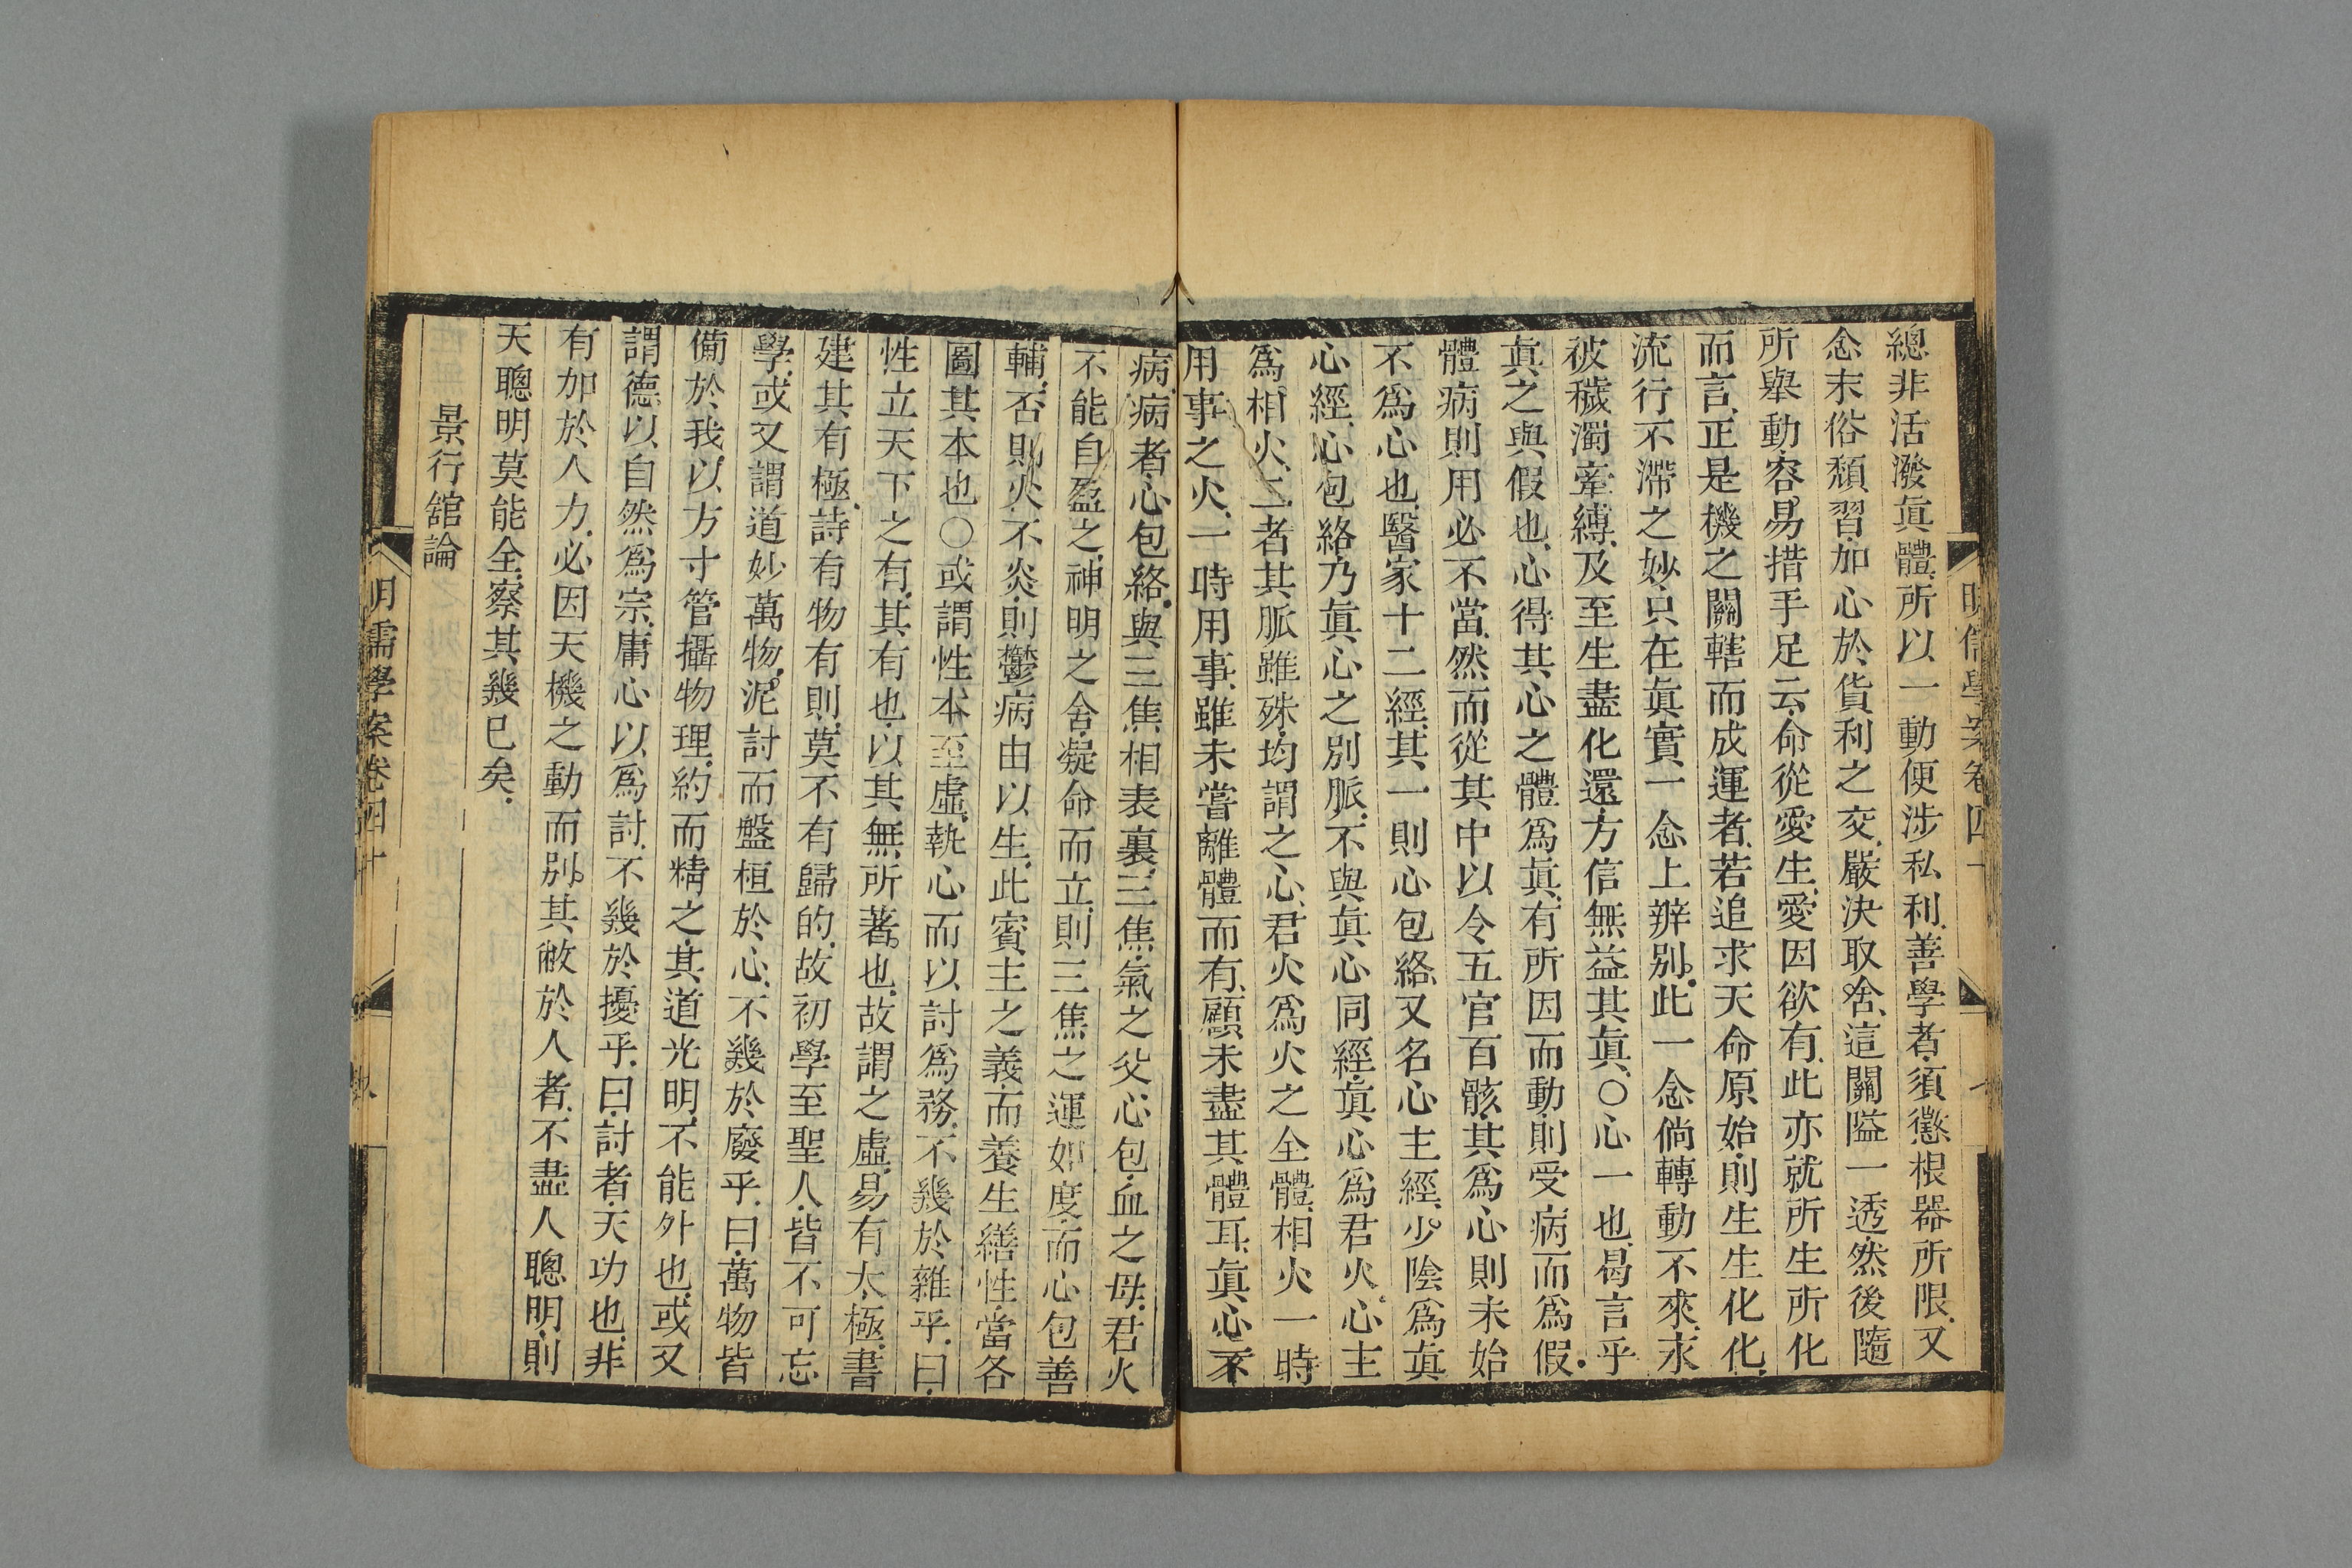 總非活潑眞體所以一動便涉私利善學者須懲根器所限又
念末俗頹習加心於貨利之交嚴決取舍這關隘一透然後隨
所舉動容易措手足云命從愛生愛因欲有此亦就所生所化
而言正是機之關轄而成運者若追求天命原始則生生化化
流行不滯之妙只在眞實一念上辨別此一念倘轉動不來求
彼穢濁牽縛及至生盡化還方信無益其眞〇心一也曷言乎
眞之與假也心得其心之體爲眞有所因而動則受病而爲假
體病則用必不當然而從其中以令五官百骸其爲心則未始
不爲心也醫家十二經其一則心包絡又名心主經少陰爲眞
心經心包絡乃眞心之別脈不與眞心同經眞心爲君火心主
爲相火二者其脈雖殊均謂之心君火爲火之全體相火一時
用事之火一時用事雖未嘗離體而有顧未盡其體耳眞心不
病病者心包絡與三焦相表裏三焦氣之父心包血之母君火
不能自盈之神明之舍凝命而立則三焦之運如度而心包善
輔否則火不炎則鬱病由以生此賓主之義而養生繕性當各
圖其本也〇或謂性本至虛執心而以討爲務不幾於雜乎曰
性立天下之有其有也以其無所著也故謂之虛易有太極書
建其有極詩有物有則莫不有歸的故初學至聖人皆不可忘
學或又謂道妙萬物泥討而盤桓於心不幾於廢乎曰萬物皆
備於我以方寸管攝物理約而精之其道光明不能外也或又
謂德以自然爲宗庸心以爲討不幾於擾乎曰討者天功也非
有加於人力必因天機之動而別其敝於人者不盡人聰明則
天聰明莫能全察其幾已矣
景行館論
明儒學案卷四十